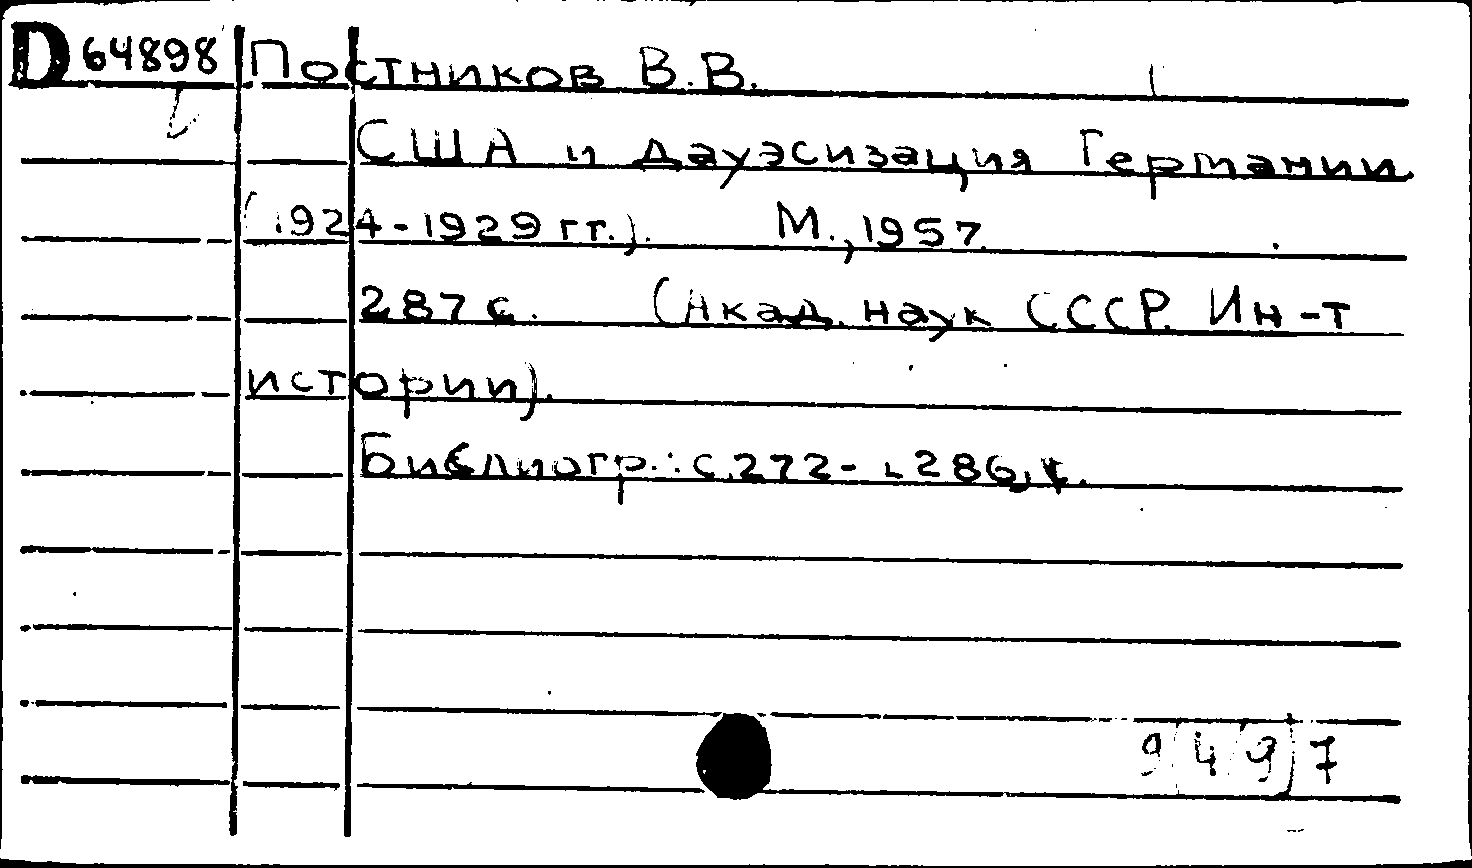 D 64898 Постников В.В.
США и дауэсизация Германии
(1924-1929 гг.). М., 1957.
287 с. (Акад. наук СССР. Ин-т
истории).
Библиогр.: с. 272-286.
9497